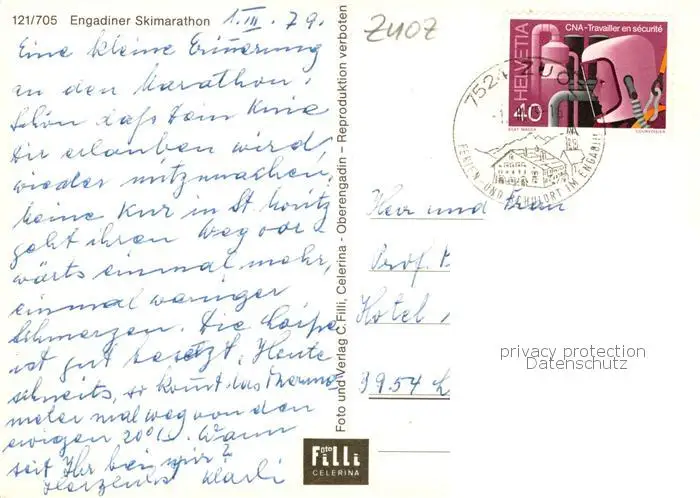 121/705 Engadiner Skimarathon
1.III.79.
Eine kleine Erinnerung
an den Marathon!
Schön dass Dein Knie
dir erlauben wird
wieder mitzumachen,
meine Kur in St. Moritz
geht ihren Weg vor-
wärts einmal mehr,
einmal weniger
Schmerzen. Die Loipe
ist gut besetzt. Heute
schneits, so kommt das Thermo-
meter mal weg von den
ewigen 20°C. Wann
seit Ihr bei mir?
Herzlichst Klärli
Foto und Verlag C. Filli, Celerina - Oberengadin - Reproduktion verboten
Foto
Filli
CELERINA
ZUOZ
HELVETIA
CNA-Travailler en sécurité
40
COURVOISIER
752
ZUOZ
FERIEN- UND SCHULORT IM ENGADIN
Herr und Frau
Prof.
Hotel
3954
privacy protection
Datenschutz